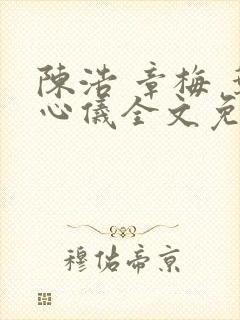 陳浩 章梅
心儀全文免
穆佑帝京